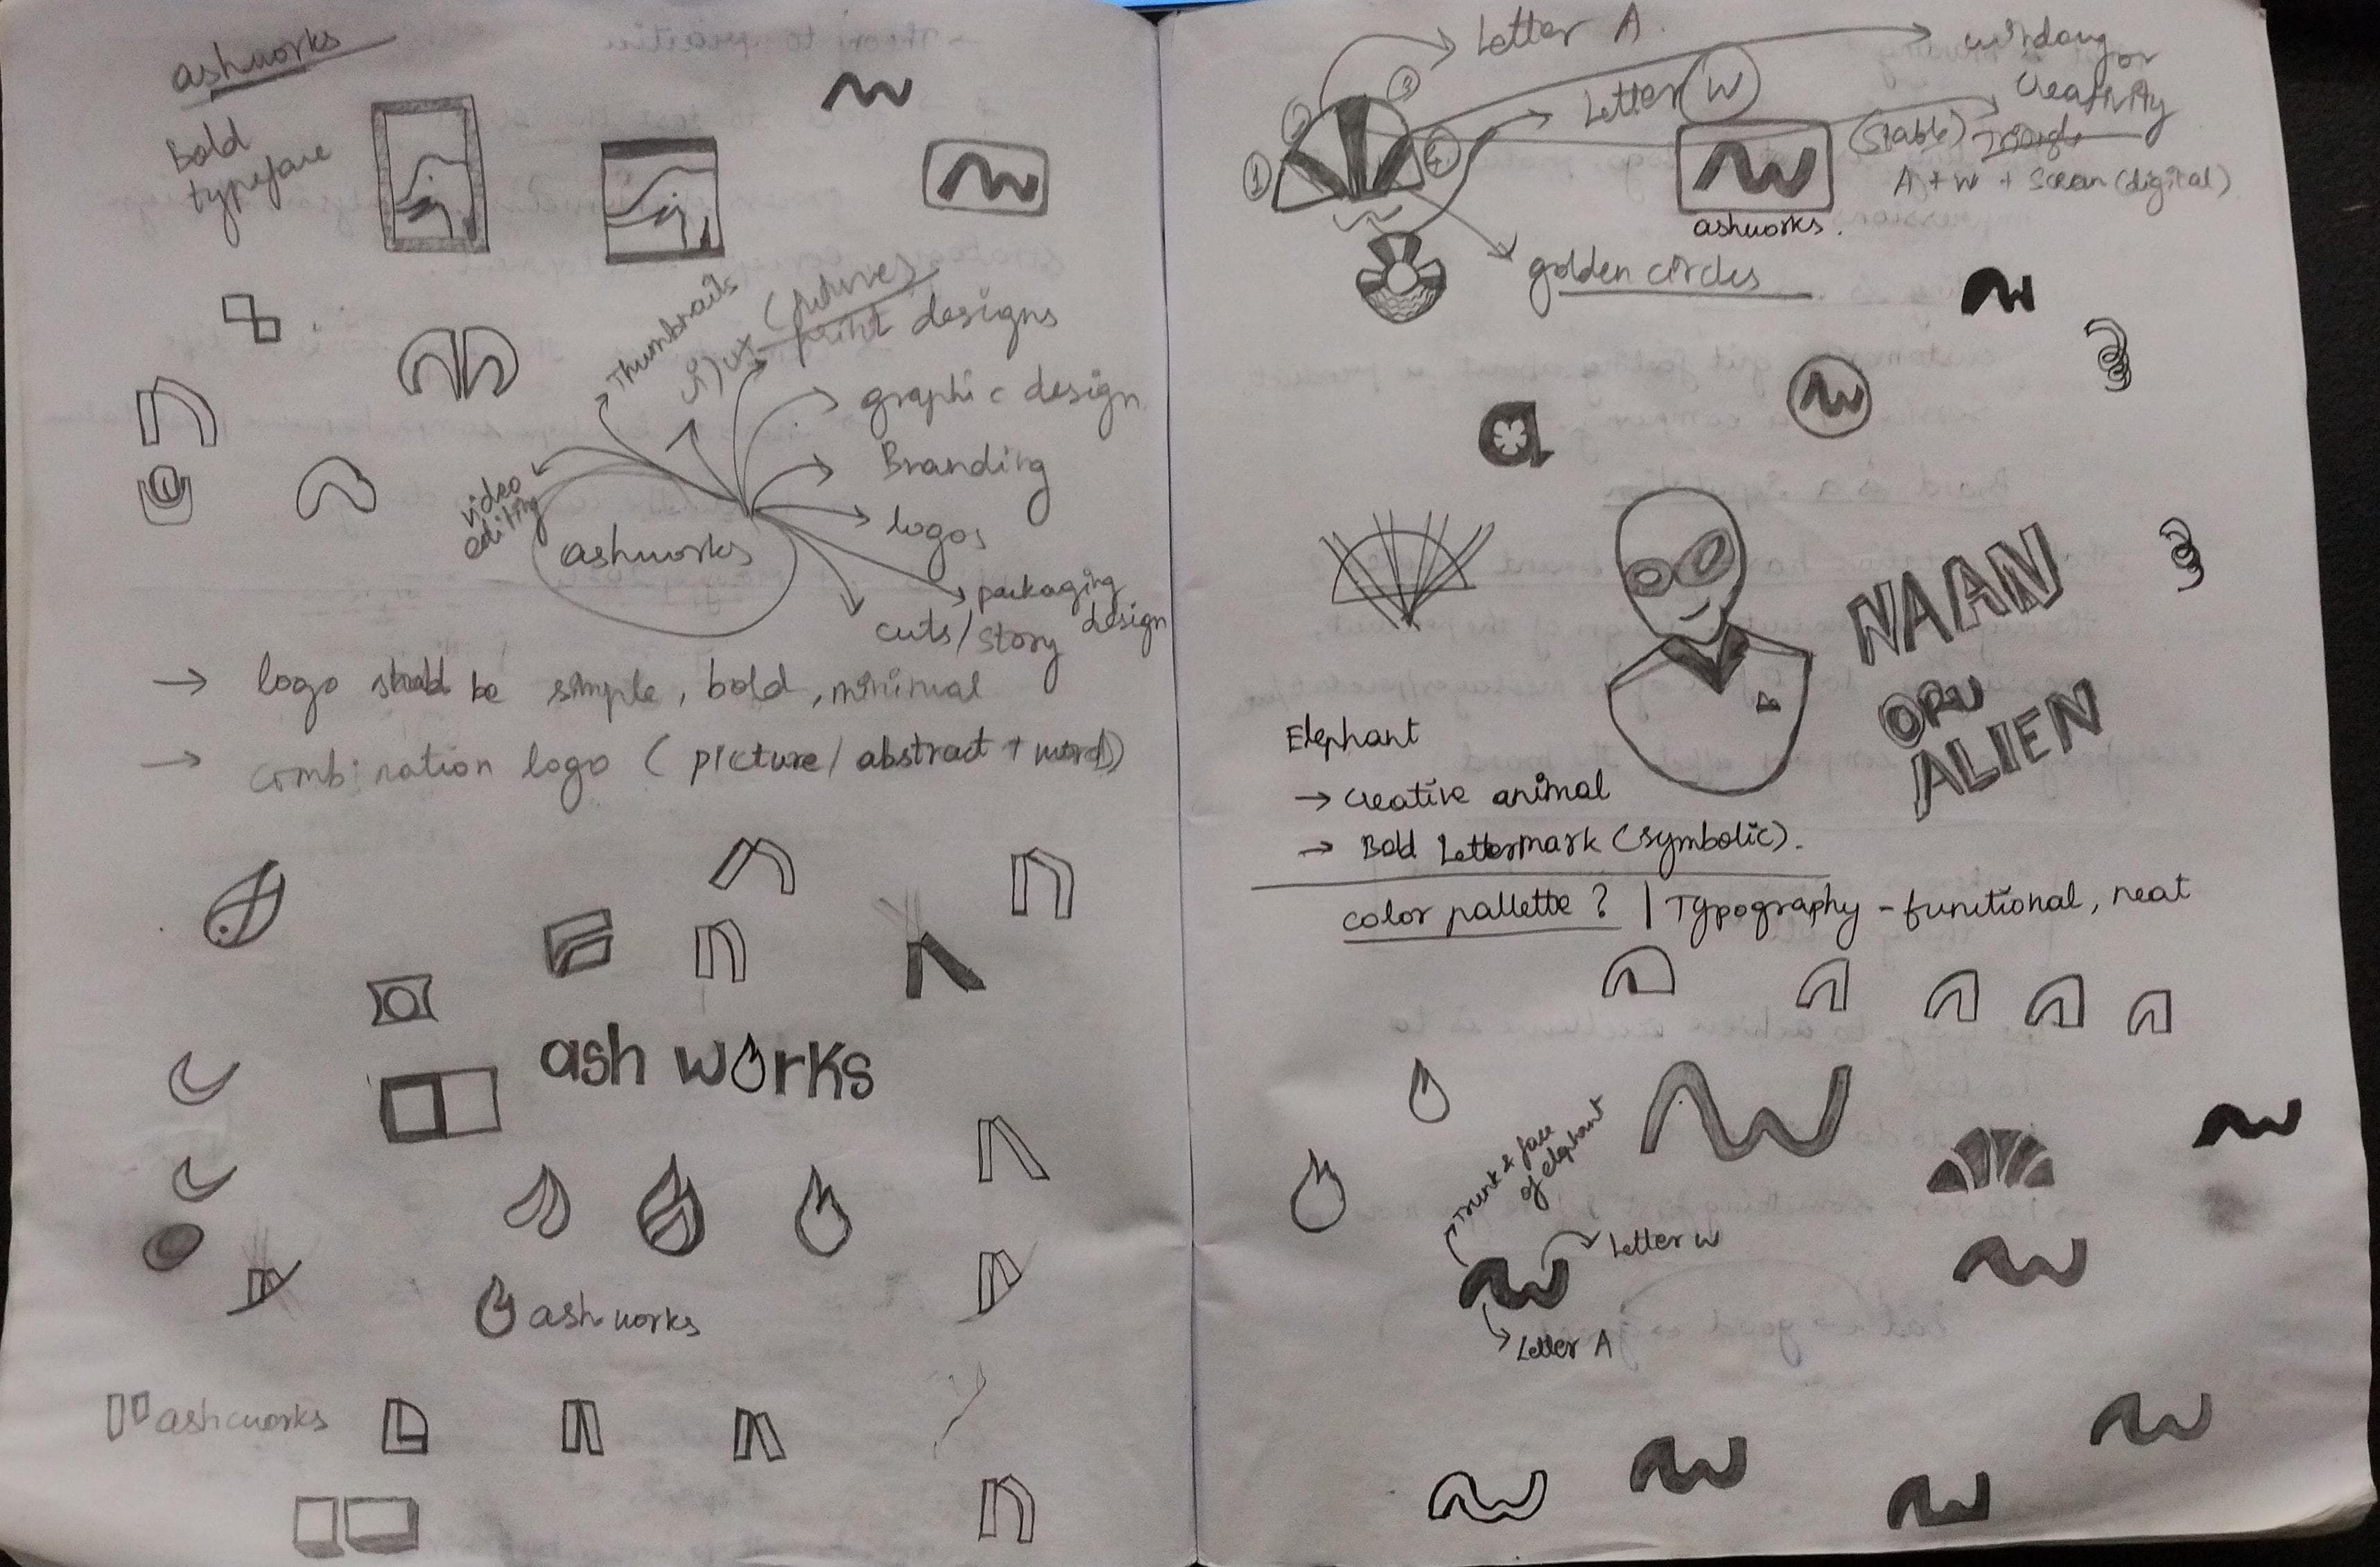 ashworks
Bold
typeface
Thumbnails
print designs
graphic design
Branding
logos
packaging
design
cuts/story
video
editing
ashworks
→ logo should be simple, bold, minimal
→ combination logo (picture/abstract + word)
ash works
ash works
ashworks
Letter A
1
2
3
4
Letter W
creativity
(stable) Triangle
A + W + Screen (digital)
ashworks.
golden circles
a
NAAN
ORU
ALIEN
Elephant
→ creative animal
→ Bold Lettermark (symbolic).
color pallette ? | Typography - functional, neat
Trunk & face
of elephant
Letter W
Letter A